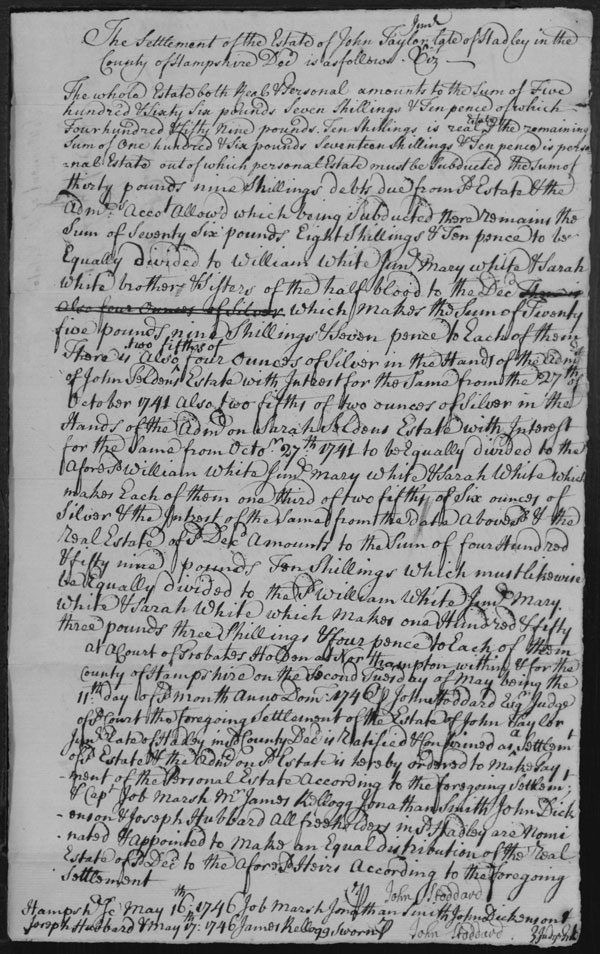 The Settlement of the Estate of John Taylor Junr late of Hadley in the
County of Hampshire Decd is as follows Viz
The whole Estate both Real & Personal amounts to the Sum of Five
hundred & Sixty Six pounds Seven Shillings & Ten pence of which
Four hundred & fifty Nine pounds Ten Shillings is real Estate & the remaining
Sum of One hundred & Six pounds Seventeen Shillings & Ten pence is perso
-nal Estate out of which personal Estate must be Subducted the Sum of
thirty pounds nine Shillings debts due from sd Estate & the
Admrs Accot Allowd which being Subducted there remains the
Sum of Seventy Six pounds Eight Shillings & Ten pence to be
Equally divided to William White Junr Mary White & Sarah
White brother & Sisters of the half blood to the Decd There is
also four Ounces of Silver which Makes the Sum of Twenty
five pounds nine Shillings & Seven pence to Each of them
There is Also two fifths of four Ounces of Silver in the Hands of the Admr
of John Seldens Estate with Interest for the Same from the 27th of
October 1741 Also two fifths of two ounces of Silver in the
Hands of the Admr on Sarah Seldens Estate with Interest
for the Same from Octor 27th 1741 to be Equally divided to the
Aforesd William White Junr Mary White & Sarah White which
makes Each of them one third of two fifths of Six ounces of
Silver & the Interest of the Same from the date Abovesd & the
Real Estate of sd Decd Amounts to the Sum of four Hundred
& fifty nine pounds Ten Shillings which must likewise
be Equally divided to the sd William White Junr Mary
White & Sarah White which Makes one Hundred & fifty
three pounds three Shillings & four pence to Each of them
At a Court of Probates Holden at Northampton within & for the
County of Hampshire on the Second Tuesday of May being the
11th day of sd Month Anno Dom: 1746 John Stoddard Esqr Judge
of sd Court the foregoing Settlement of the Estate of John Taylor
Junr Late of Hadley in sd County Decd is Ratified & Confirmed as a Settlemt
of sd Estate & the Admr on sd Estate is hereby ordered to Make Pay
-ment of the Personal Estate According to the foregoing Settlemt;
& Capt Job Marsh Mr James Kellogg Jonathan Smith John Dick
-enson & Joseph Hubbard All freeholders in sd Hadley are Nomi
nated & Appointed to Make an Equal distribution of the Real
Estate of sd Decd to the Aforesd Heirs According to the foregoing
Settlement
John Stoddard
Hampshr Ss May 16th: 1746 Job Marsh Jonathan Smith John Dickenson &
Joseph Hubbard & May 17th: 1746 James Kellogg Sworn
John Stoddard